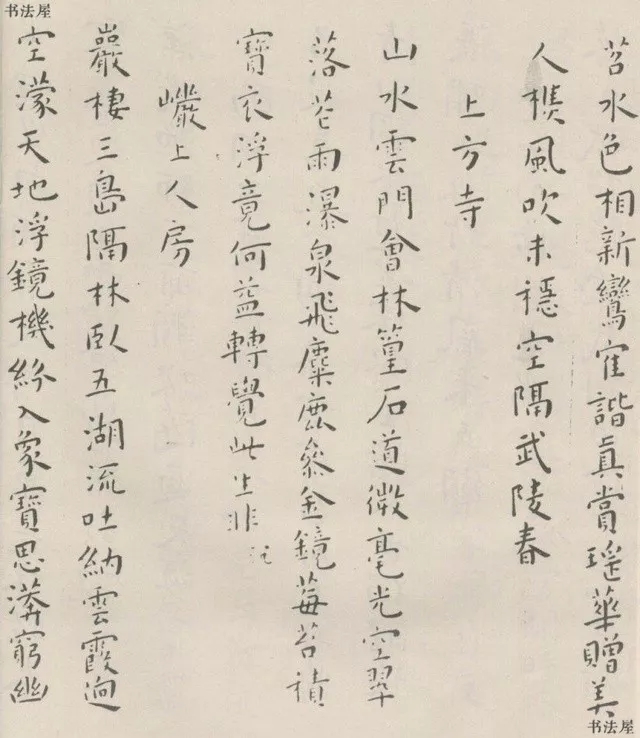 书法屋
苕水色相新鸞隺諧真賞瑤華贈美
人檥風吹未穩空隔武陵春
上方寺
山水雲門會林篁石道微毫光空翠
落花雨瀑泉飛麋鹿參金鏡莓苔積
寶衣浮竟何益轉覺此生非
巘上人房
巖棲三島隔林臥五湖流吐納雲霞迥
空濛天地浮鏡機紛入象寶思溔窮幽
书法屋